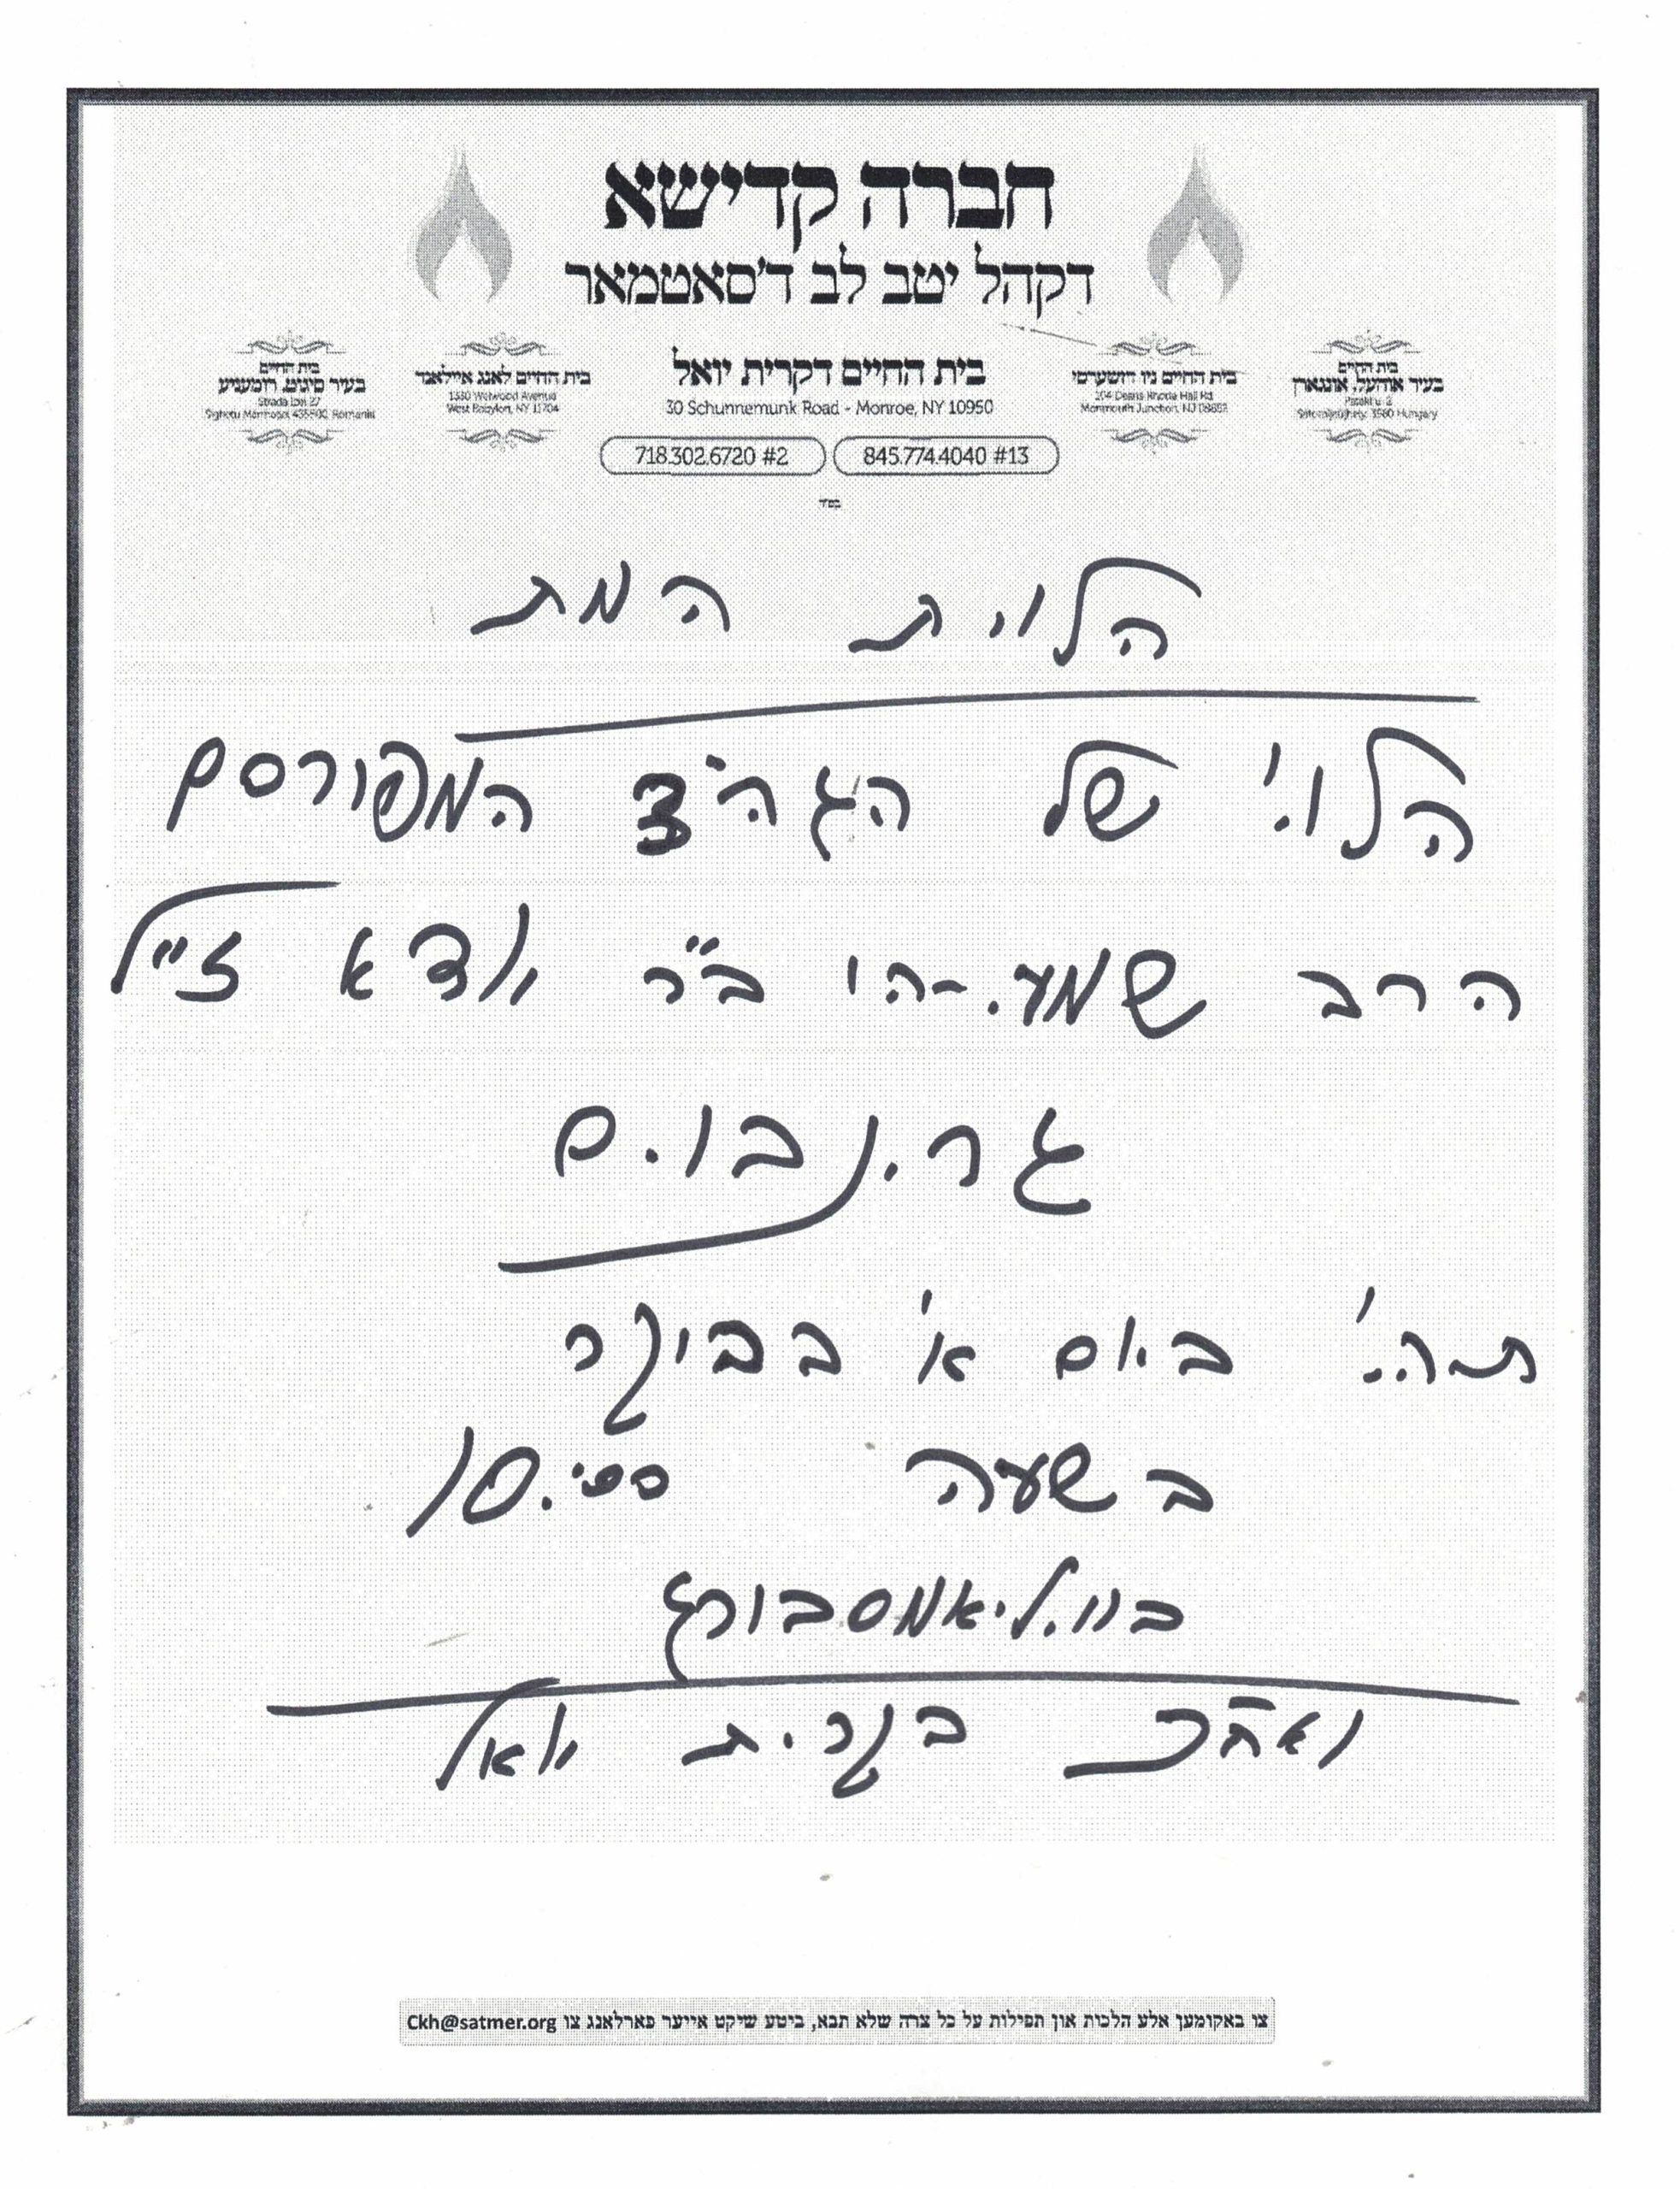 חברה קדישא
דקהל יטב לב ד'סאטמאר
בית החיים
בעיר אוהעל, אונגארן
Pataki u. 2
Satoraljaujhely, 3980 Hungary
בית החיים ניו דזשערסי
204 Deans Rhode Hall Rd
Monmouth Junction, NJ 08852
בית החיים דקרית יואל
30 Schunnemunk Road - Monroe, NY 10950
בית החיים לאנג איילאנד
1330 Welwood Avenue
West Babylon, NY 11704
בית החיים
בעיר סיגוט, רומעניע
Strada Izei 27
Sighetu Marmației 435500, Romania
718.302.6720 #2
845.774.4040 #13
בס"ד
הלוית המת
הלוי' של הגה"צ המפורסם
הרב שמעי-הו ב"ר יודא ז"ל
גרינבוים
תהי' ביום א' בבוקר
בשעה 10
בוויליאמסבורג
ואח"כ בקרית יואל
צו באקומען אלע הלכות און תפילות על כל צרה שלא תבא, ביטע שיקט אייער פארלאנג צו Ckh@satmer.org